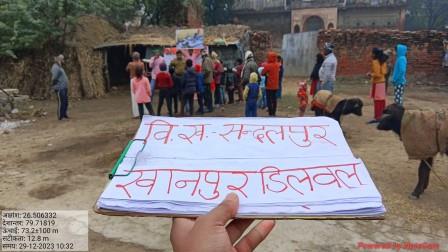 वि.ख.-सन्दलपुर
खानपुर डिलवल
अक्षांश: 26.506332
देशान्तर: 79.71819
ऊंचाई: 73.2±100 m
सटीकता: 12.8 m
समय: 29-12-2023 10:32
Powered by NoteCam